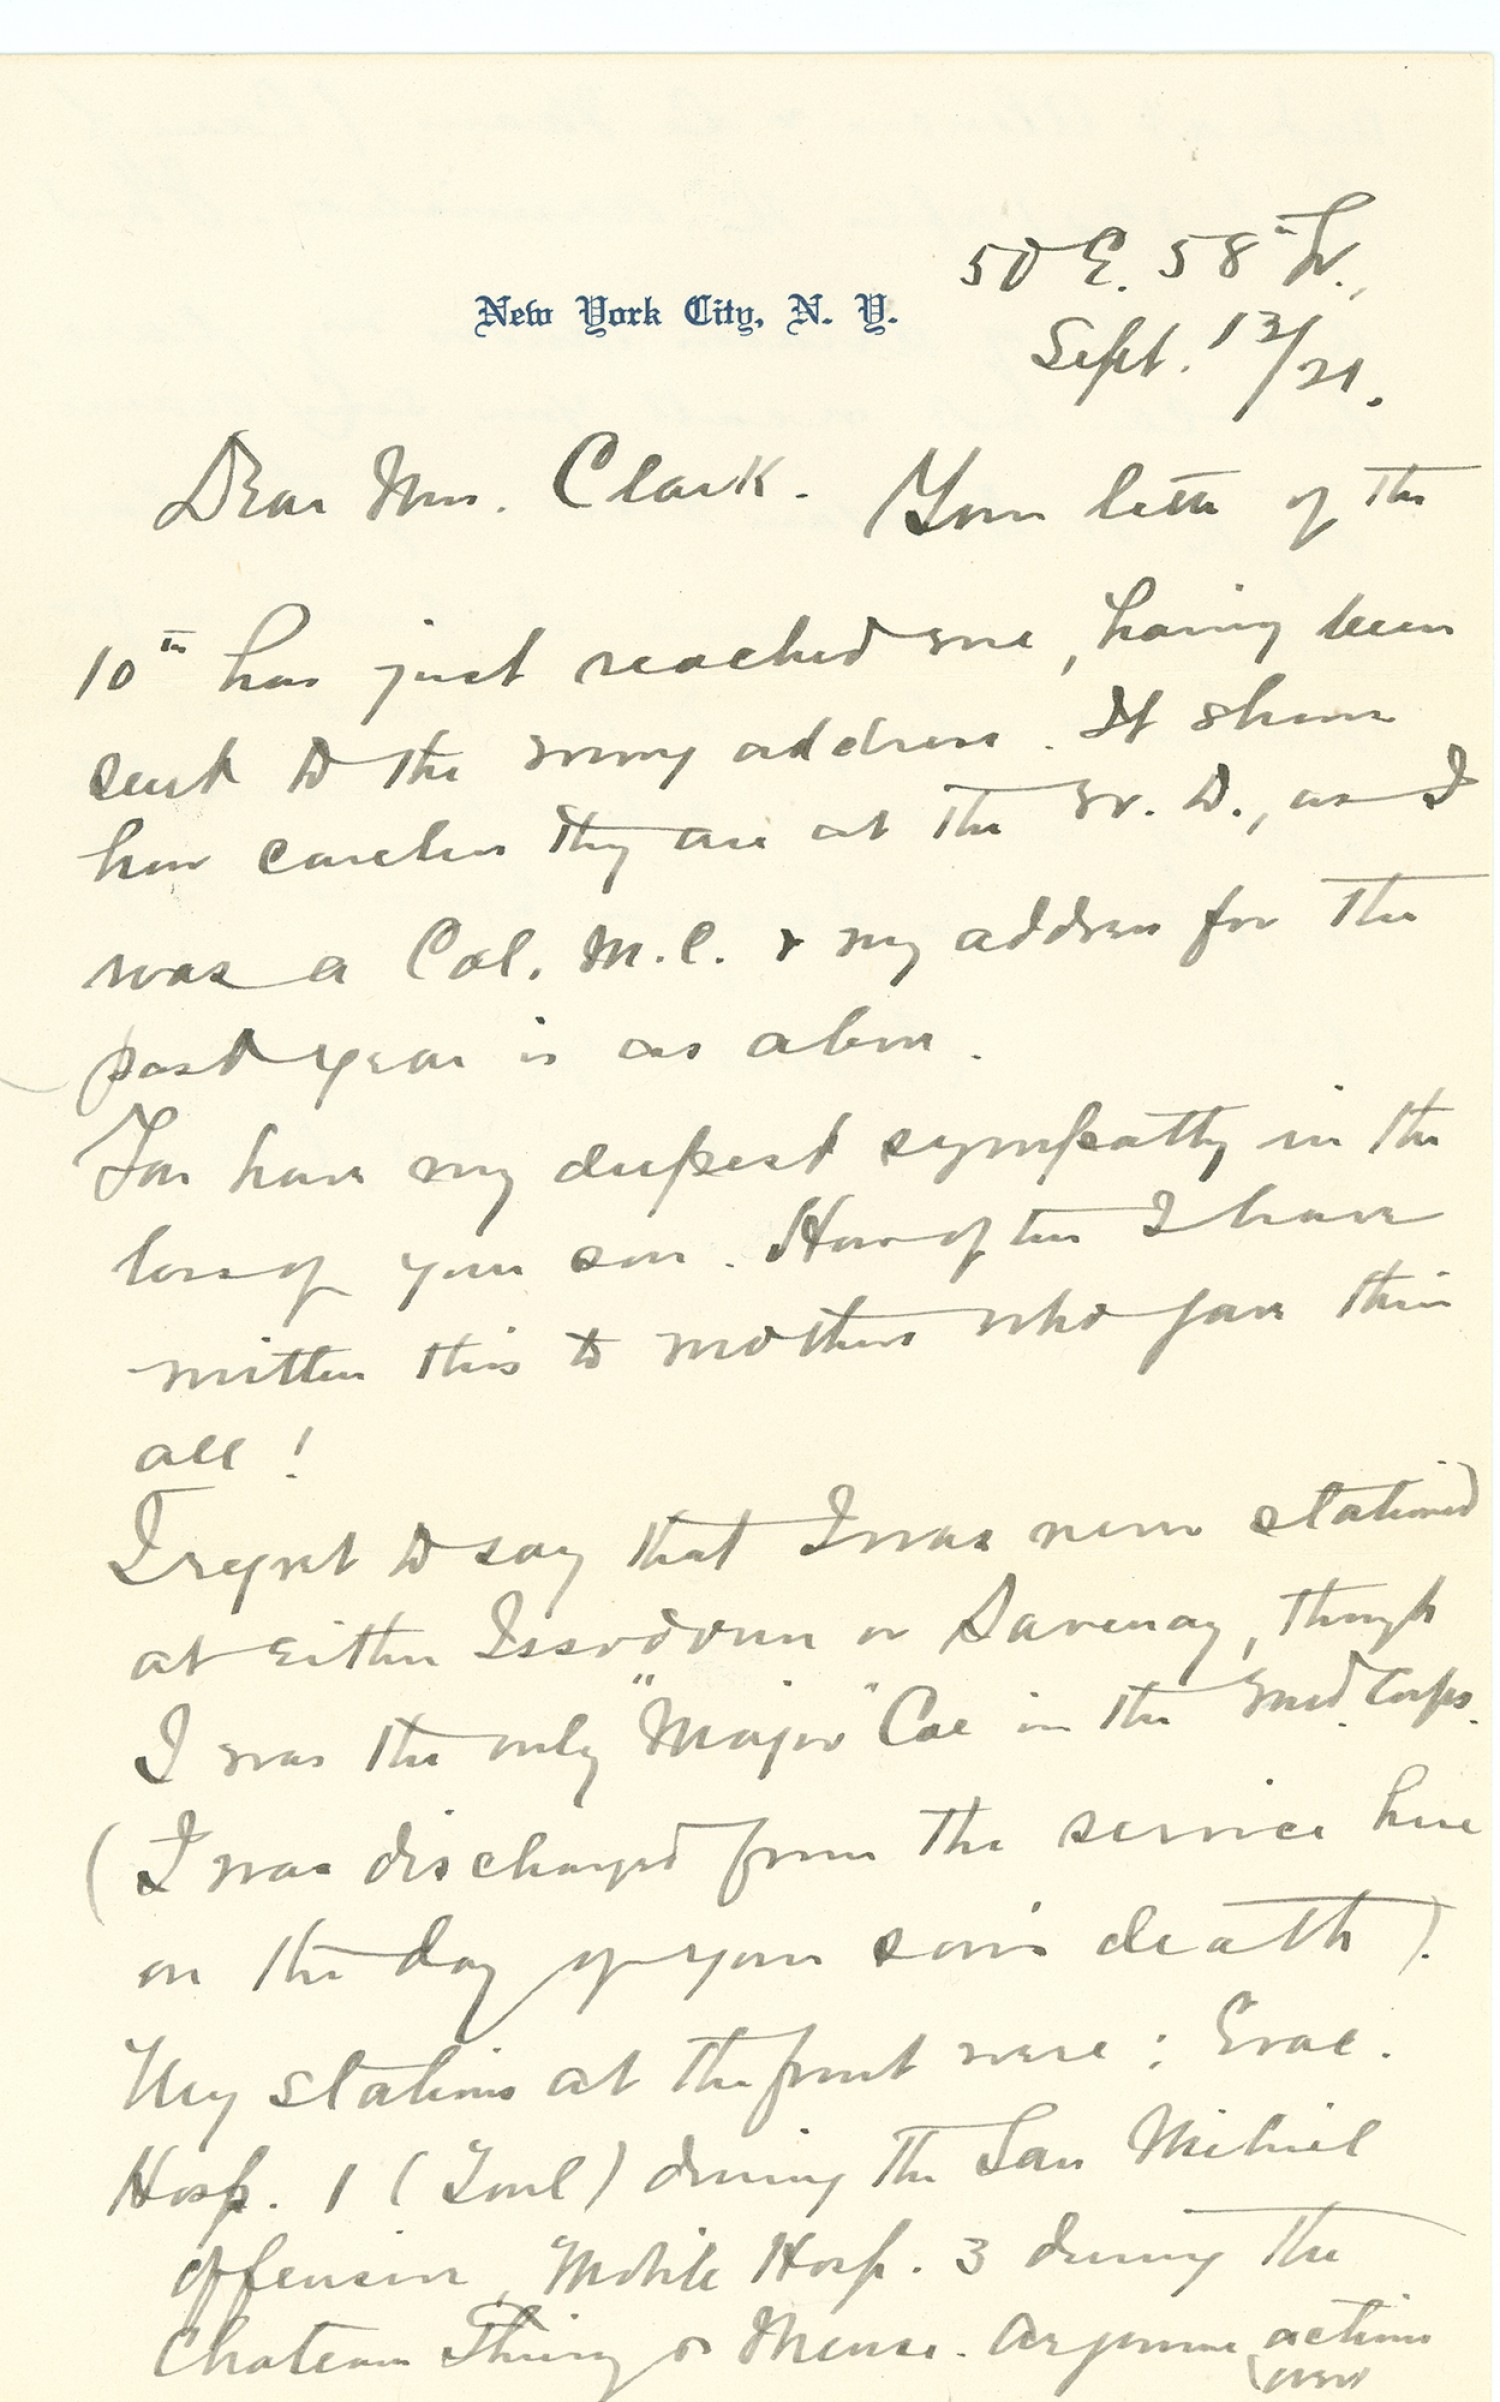 50 E. 58th St.,
New York City, N. Y.
Sept. 13/21.
Dear Mrs. Clark. Your letter of the
10th has just reached me, having been
sent to the wrong address. It shows
how careless they are at the W. D., as I
was a Col. M.C. & my address for the
past year is as above.
You have my deepest sympathy in the
loss of your son. How often I have
written this to mothers who gave their
all!
I regret to say that I was never stationed
at either Issodoun or Savenay, though
I was the only "Major" Coe in the Med. Corps.
(I was discharged from the service here
on the day of your son's death).
My stations at the front were: Evac.
Hosp. 1 (Toul) during the San Mihiel
offensive, Mobile Hosp. 3 during the
Chateau Thierry & Meuse-Argonne actions